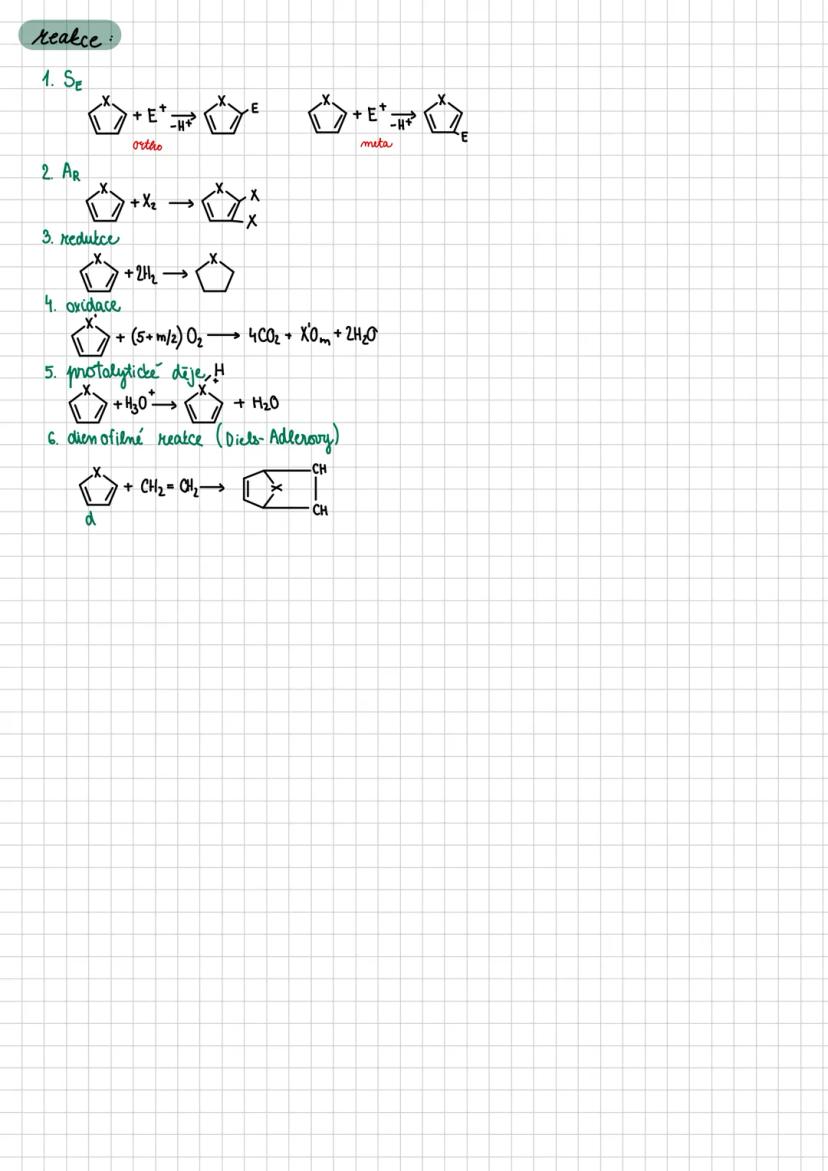 reakce:
1. SE
X + E+ ⇌ -H+ X E X + E+ ⇌ -H+ X E
ortho meta
2. AR
X + X2 → X X X
3. redukce
X + 2H2 → X
4. oxidace
X' + (5+m/2) O2 → 4CO2 + X'Om + 2H2O
5. protolytické děje
X + H3O+ → X+ H + H2O
6. dienofilné reakce (Diels-Adlerovy)
X + CH2=CH2 → X CH CH
d